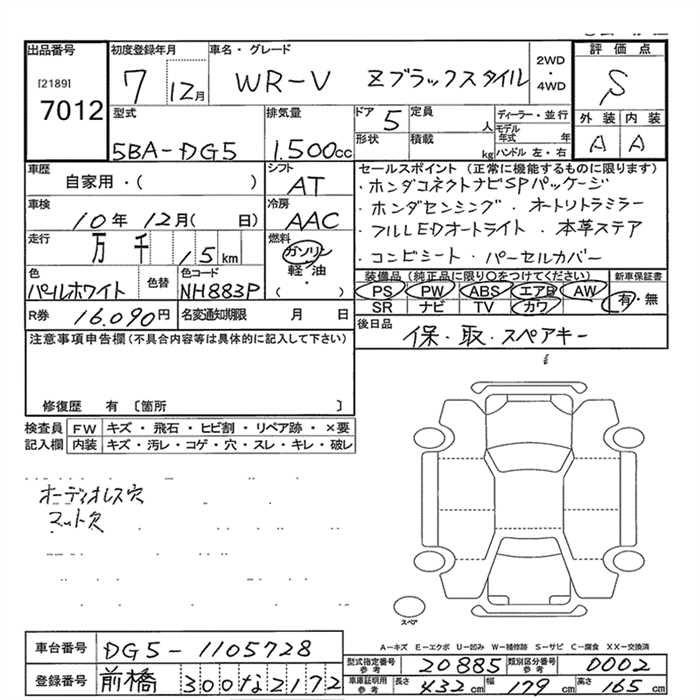 出品番号 初度登録年月 車名・グレード 2WD・4WD 評価点
[2189] 7012 7 12月 WR-V Zブラックスタイル S
型式 排気量 ドア 5 定員 人 ディーラー・並行 外装 内装
5BA-DG5 1.500cc 形状 積載 kg モデル年式 年 ハンドル 左・右 A A
車歴 シフト セールスポイント (正常に機能するものに限ります)
自家用・( ) AT ・ホンダコネクトナビSPパッケージ
車検 冷房 ・ホンダセンシング ・オートリトラミラー
10年 12月( 日) AAC ・フルLEDオートライト ・本革ステア
走行 万 千 15 km 燃料 ガソリン 軽・油 ( ・ ) ・コンビシート ・パーセルカバー
色 色替 色コード 装備品 (純正品に限り○をつけてください) 新車保証書
パールホワイト NH883P PS PW ABS エアB AW 有・無
SR ナビ TV カワ
R券 16.090円 名変通知期限 月 日 後日品 保・取・スペアキー
注意事項申告欄(不具合内容等は具体的に記入して下さい)
修復歴 有 〔箇所 〕
検査員 FW キズ・飛石・ヒビ割・リペア跡・×要
記入欄 内装 キズ・汚レ・コゲ・穴・スレ・キレ・破レ
オーディオレス穴
マット欠
スペア
A-キズ E-エクボ U-凹み W-補修跡 S-サビ C-腐食 XX-交換済
車台番号 DG5-1105728 型式指定番号 参考 20885 類別区分番号 参考 0002
登録番号 前橋 300 な 2172 車庫証明用 参考 長さ 432 cm 幅 179 cm 高さ 165 cm